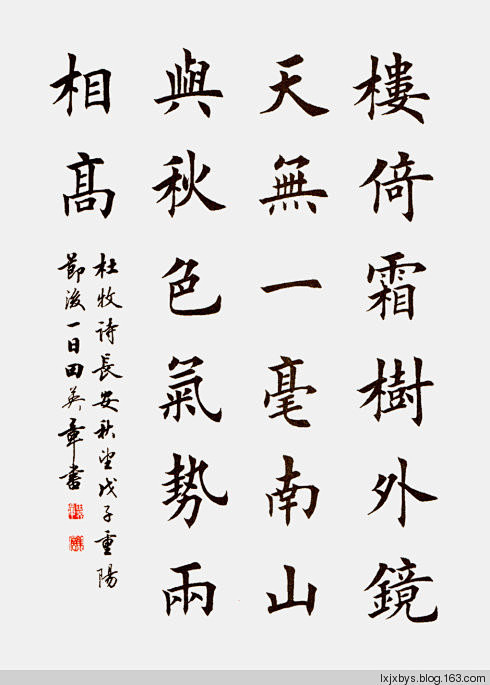 樓倚霜樹外鏡
天無一毫南山
與秋色氣勢兩
相高
杜牧诗長安秋望戊子重陽
節後一日田英章書
lxjxbys.blog.163.com